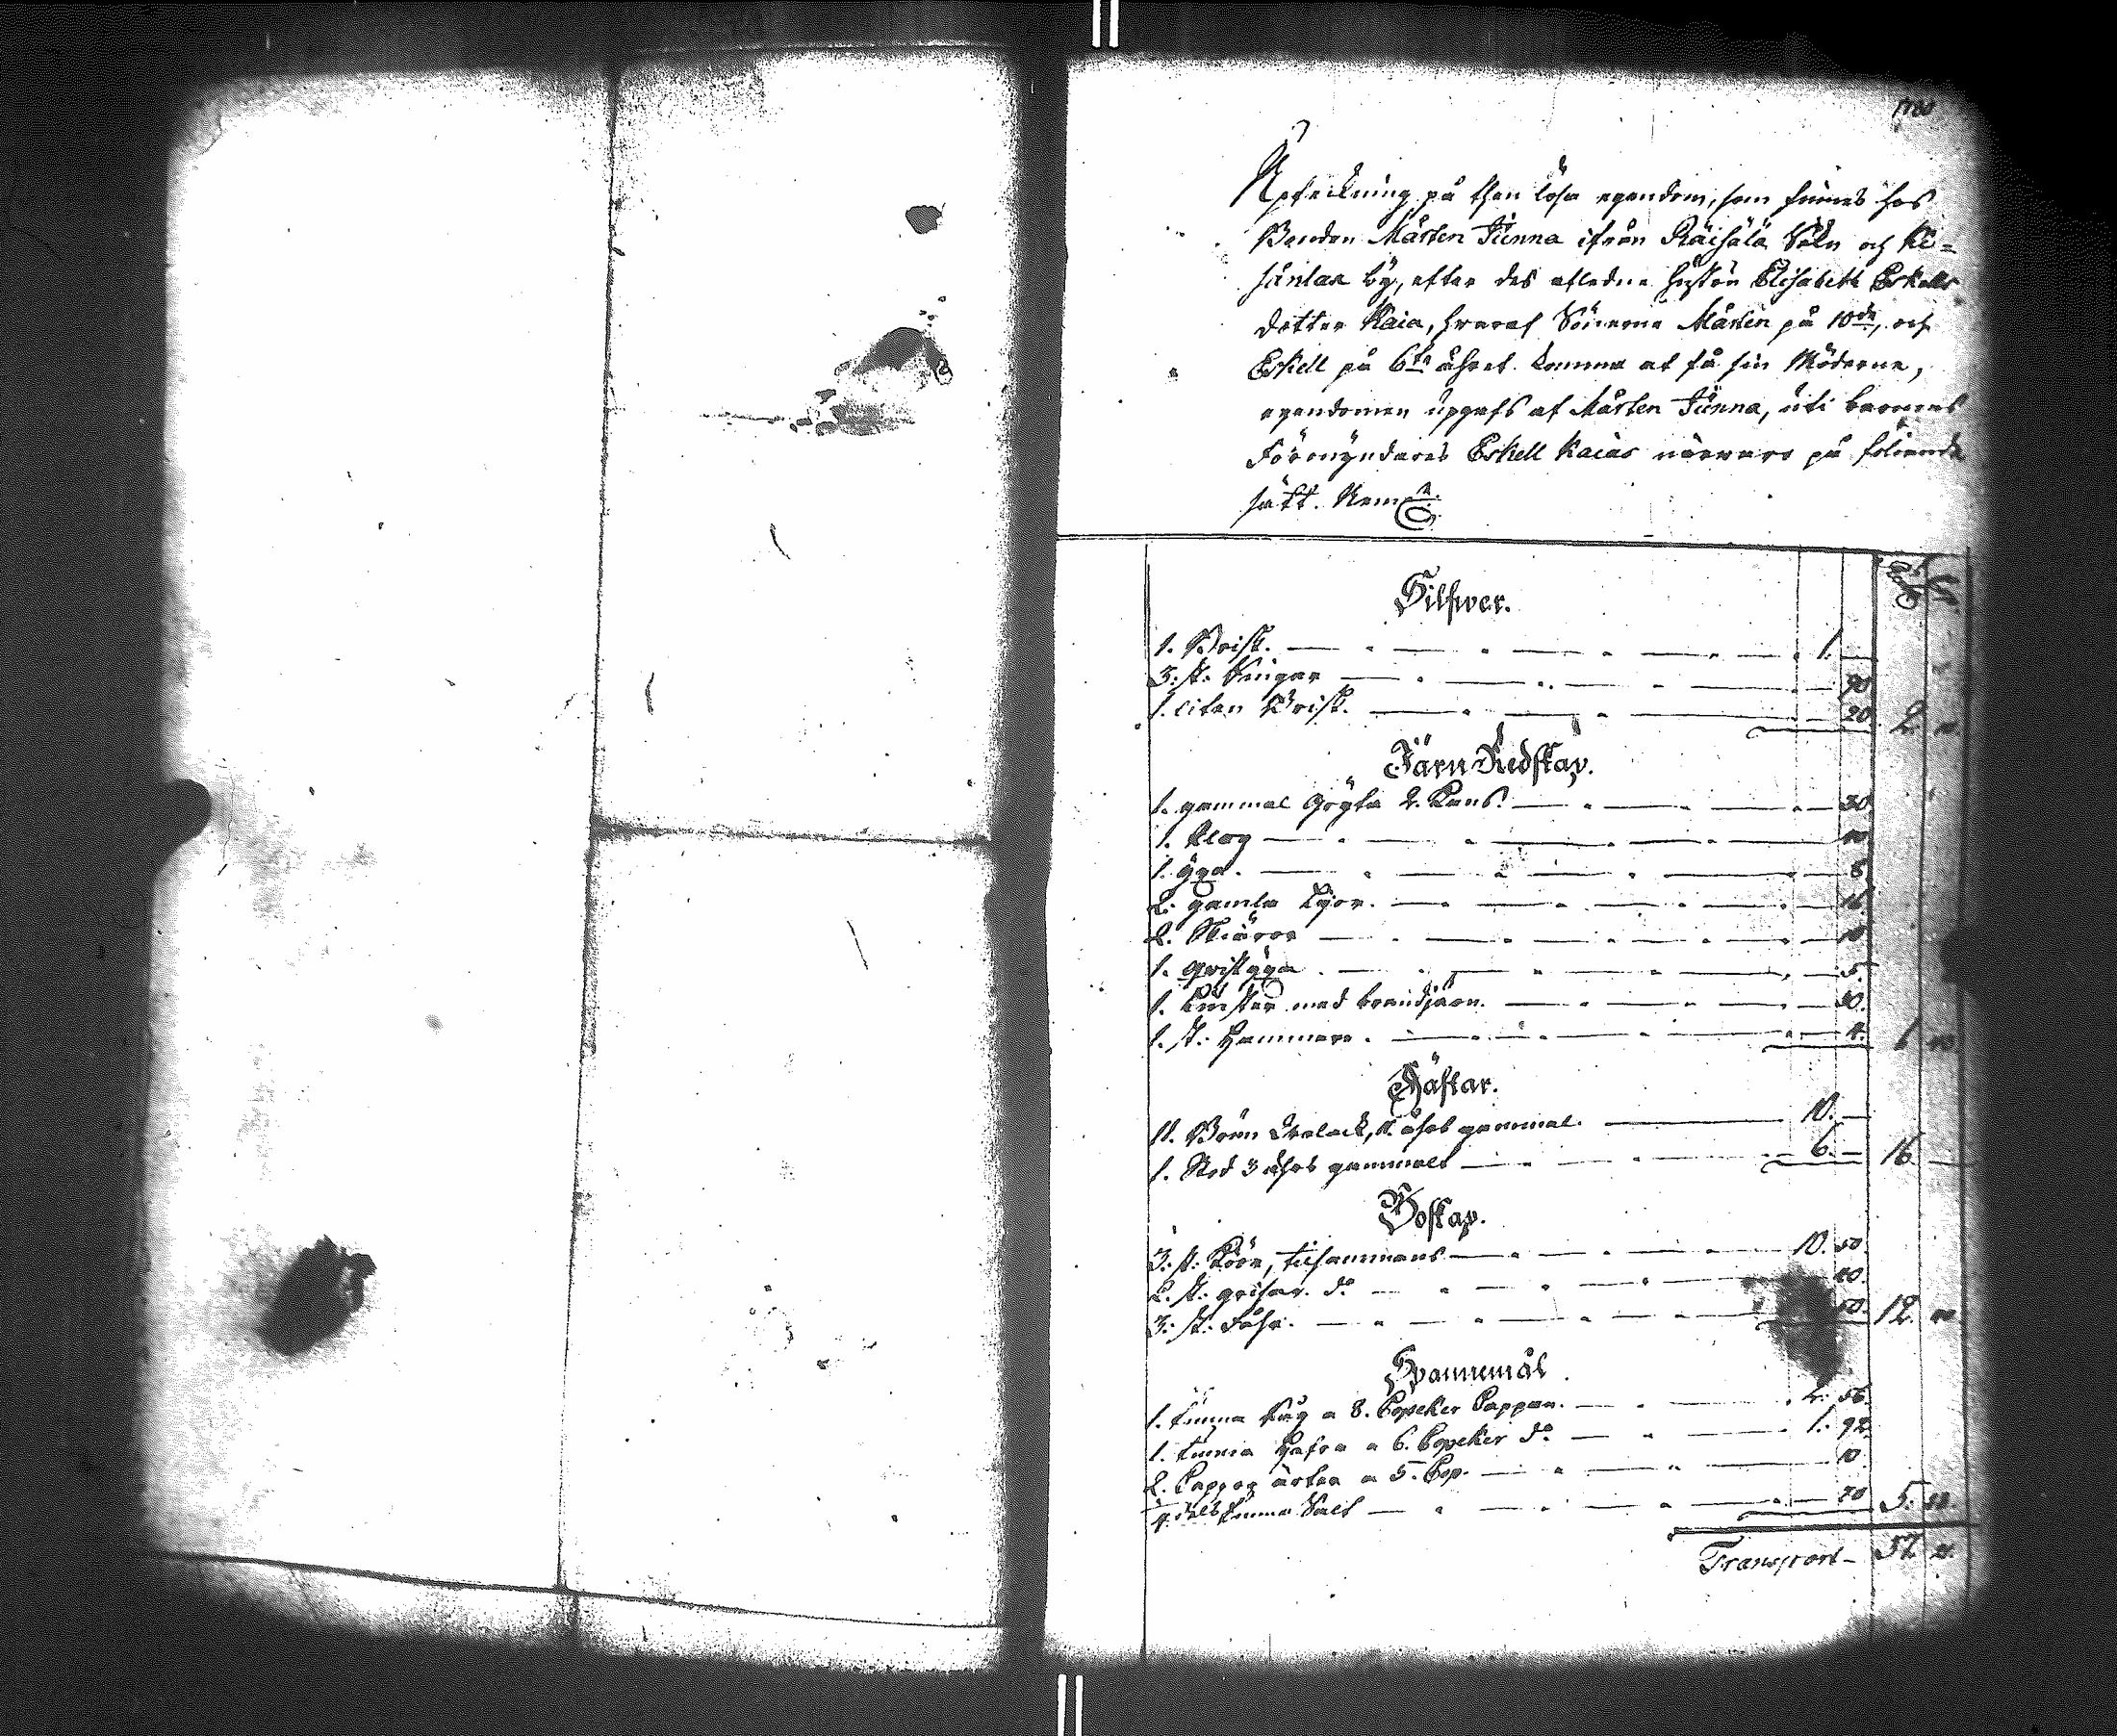 Upteckning på then lösa egendom, som finnes hos
Bonden Mårten Junna ifrån Räisälä Sokn och
by, efter des afledne hustru Elisabeth Eskells
dotter Kaia, hvaraf Sönerne Mårten på 10de, och
Eskell på 6te åhret komma at få sin Möderne,
egendomen upgafs af Mårten Junna, uti barnens
Förmyndares Eskell Kaias närvaro på följande
sätt. Nem.
Silfwer.
1. Brisk. 1.
3. st: Ringar 90
1. liten Brisk. 20 2. 10
Järn Redskap.
1. gammal Gryta 2. Kans. 30
1. Plog
1. yxa. 8
2. gamla 16
2. Skäror 10
1. yxa 5
1. med brandjärn. 30.
1. st: Hammare. 4. 1
Hästar.
1. Brun Walack, åhrs gammal. 10.
1. Stod 3 åhrs gammalt 6. 16
Boskap.
3. st: Koor, tilsammans 10. 50.
2. st: grisar. do 40.
3. st: Fåhr. 12.
Spannemål.
1. tunna Råg a 8. Copeker Cappan. 2. 56.
1. tunna Hafra a 6. Copeker do 1. 92.
2. Cappar ärter a 5. Cop. 10.
tunna Salt 70 5.
Transport 37.